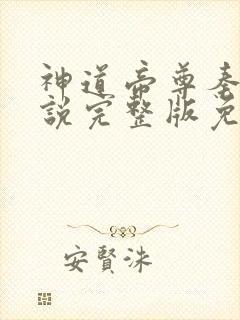 神道帝尊秦
説完整版免
安賢洙